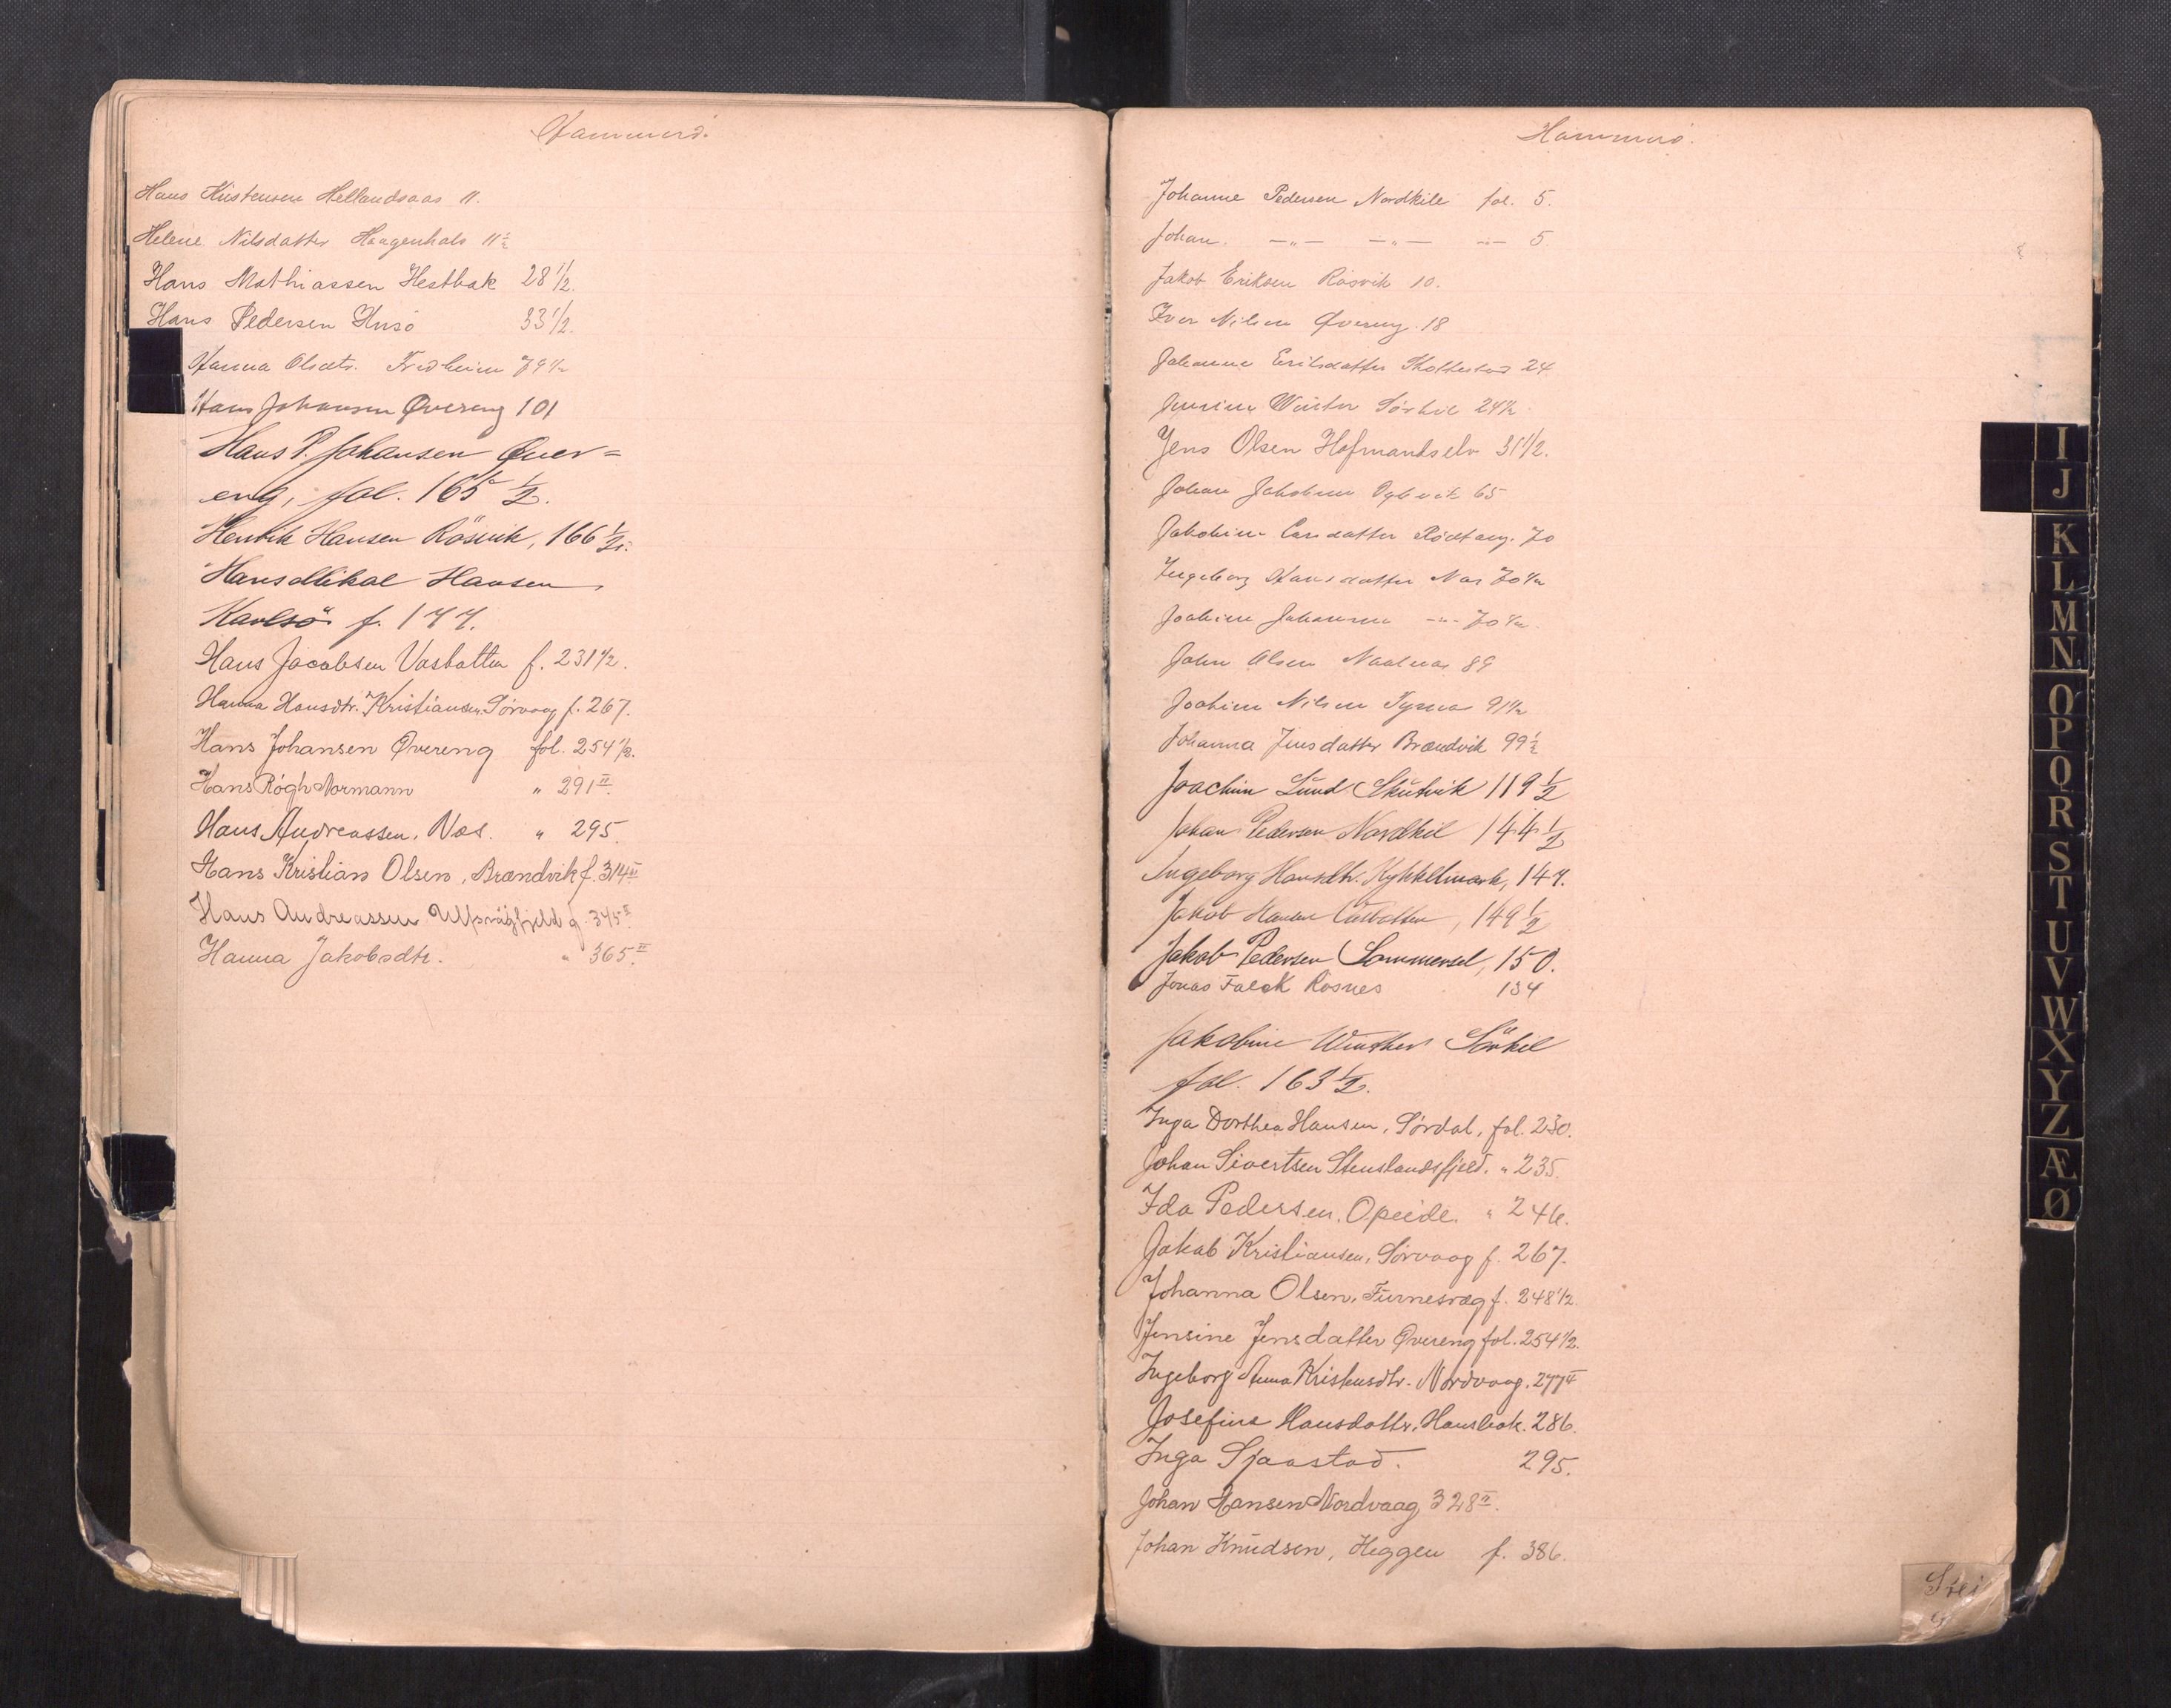 Hammerö.
Hans Kristensen Hellandsaas 11.
Helene Nilsdatter Haagenhals 11½
Hans Mathiassen Hestbak 28 1/2.
Hans Pedersen Husö 33 1/2.
Hanna Olsdtr. Fredheim 79½
Hans Johansen Øvereng 101
Hans P. Johansen Øver=
eng, fol. 165 ½.
Henrik Hansen Rösvik, 166 ½.
Hans Mikal Hansen
Karlsö f. 177.
Hans Jacobsen Vasbotten f. 231½.
Hanna Hansdtr. Kristiansen, Sørvaag f. 267.
Hans Johansen Øvereng fol. 254½.
Hans Rögh Normann " 291 II.
Hans Andreassen, Næs. " 295.
Hans Kristian Olsen, Brændvik f. 314 II
Hans Andreassen 345 II
Hanna Jakobsdtr. " 365 II.
Hammerö.
Johanne Pedersen Nordkile fol. 5.
Johan. —"— —"— —"— 5
Jakob Eriksen Rösvik 10.
Iver Nilsen Øvereng 18
Johanne Eriksdatter 24
Jensine Winter Sörkil 24½
Jens Olsen Hofmandselv 31 1/2.
Johan Jakobsen 65
Jakobine datter 70
Ingeborg Hansdatter Næs 70½
Joakim Johansen —"— 70½
Johan Olsen 89
Joakim Nilsen 91½
Johanna Jensdatter Brændvik 99½
Joachim Lund Skutvik 119 ½
Johan Pedersen Nordkil 144 ½
Ingeborg Hansdtr. 147.
Jakob Hansen 149 ½
Jakob Pedersen Sommersel, 150.
Jonas Falck Rosnes 134
Jakobine Winther Sörkil
fol. 163 ½.
Inga Dorthea Hansen, Sørdal, fol. 230.
Johan Sivertsen Stenslandsfjeld. " 235.
Ida Pedersen, Opeide. " 246.
Jakob Kristiansen, Sørvaag f. 267.
Johanna Olsen, Furnesvæg f. 248½.
Jensine Jensdatter Øvereng fol. 254½.
Ingeborg Anna Kristensdtr. Nordvaag. 277 II
Josefine Hansdattr. Hansbak. 286.
Inga Sjaastad. 295.
Johan Hansen Nordvaag 328 II.
Johan Knudsen, Heggen f. 386.
I
J
K
L
M
N
O
P
Q
R
S
T
U
V
W
X
Y
Z
Æ
Ø